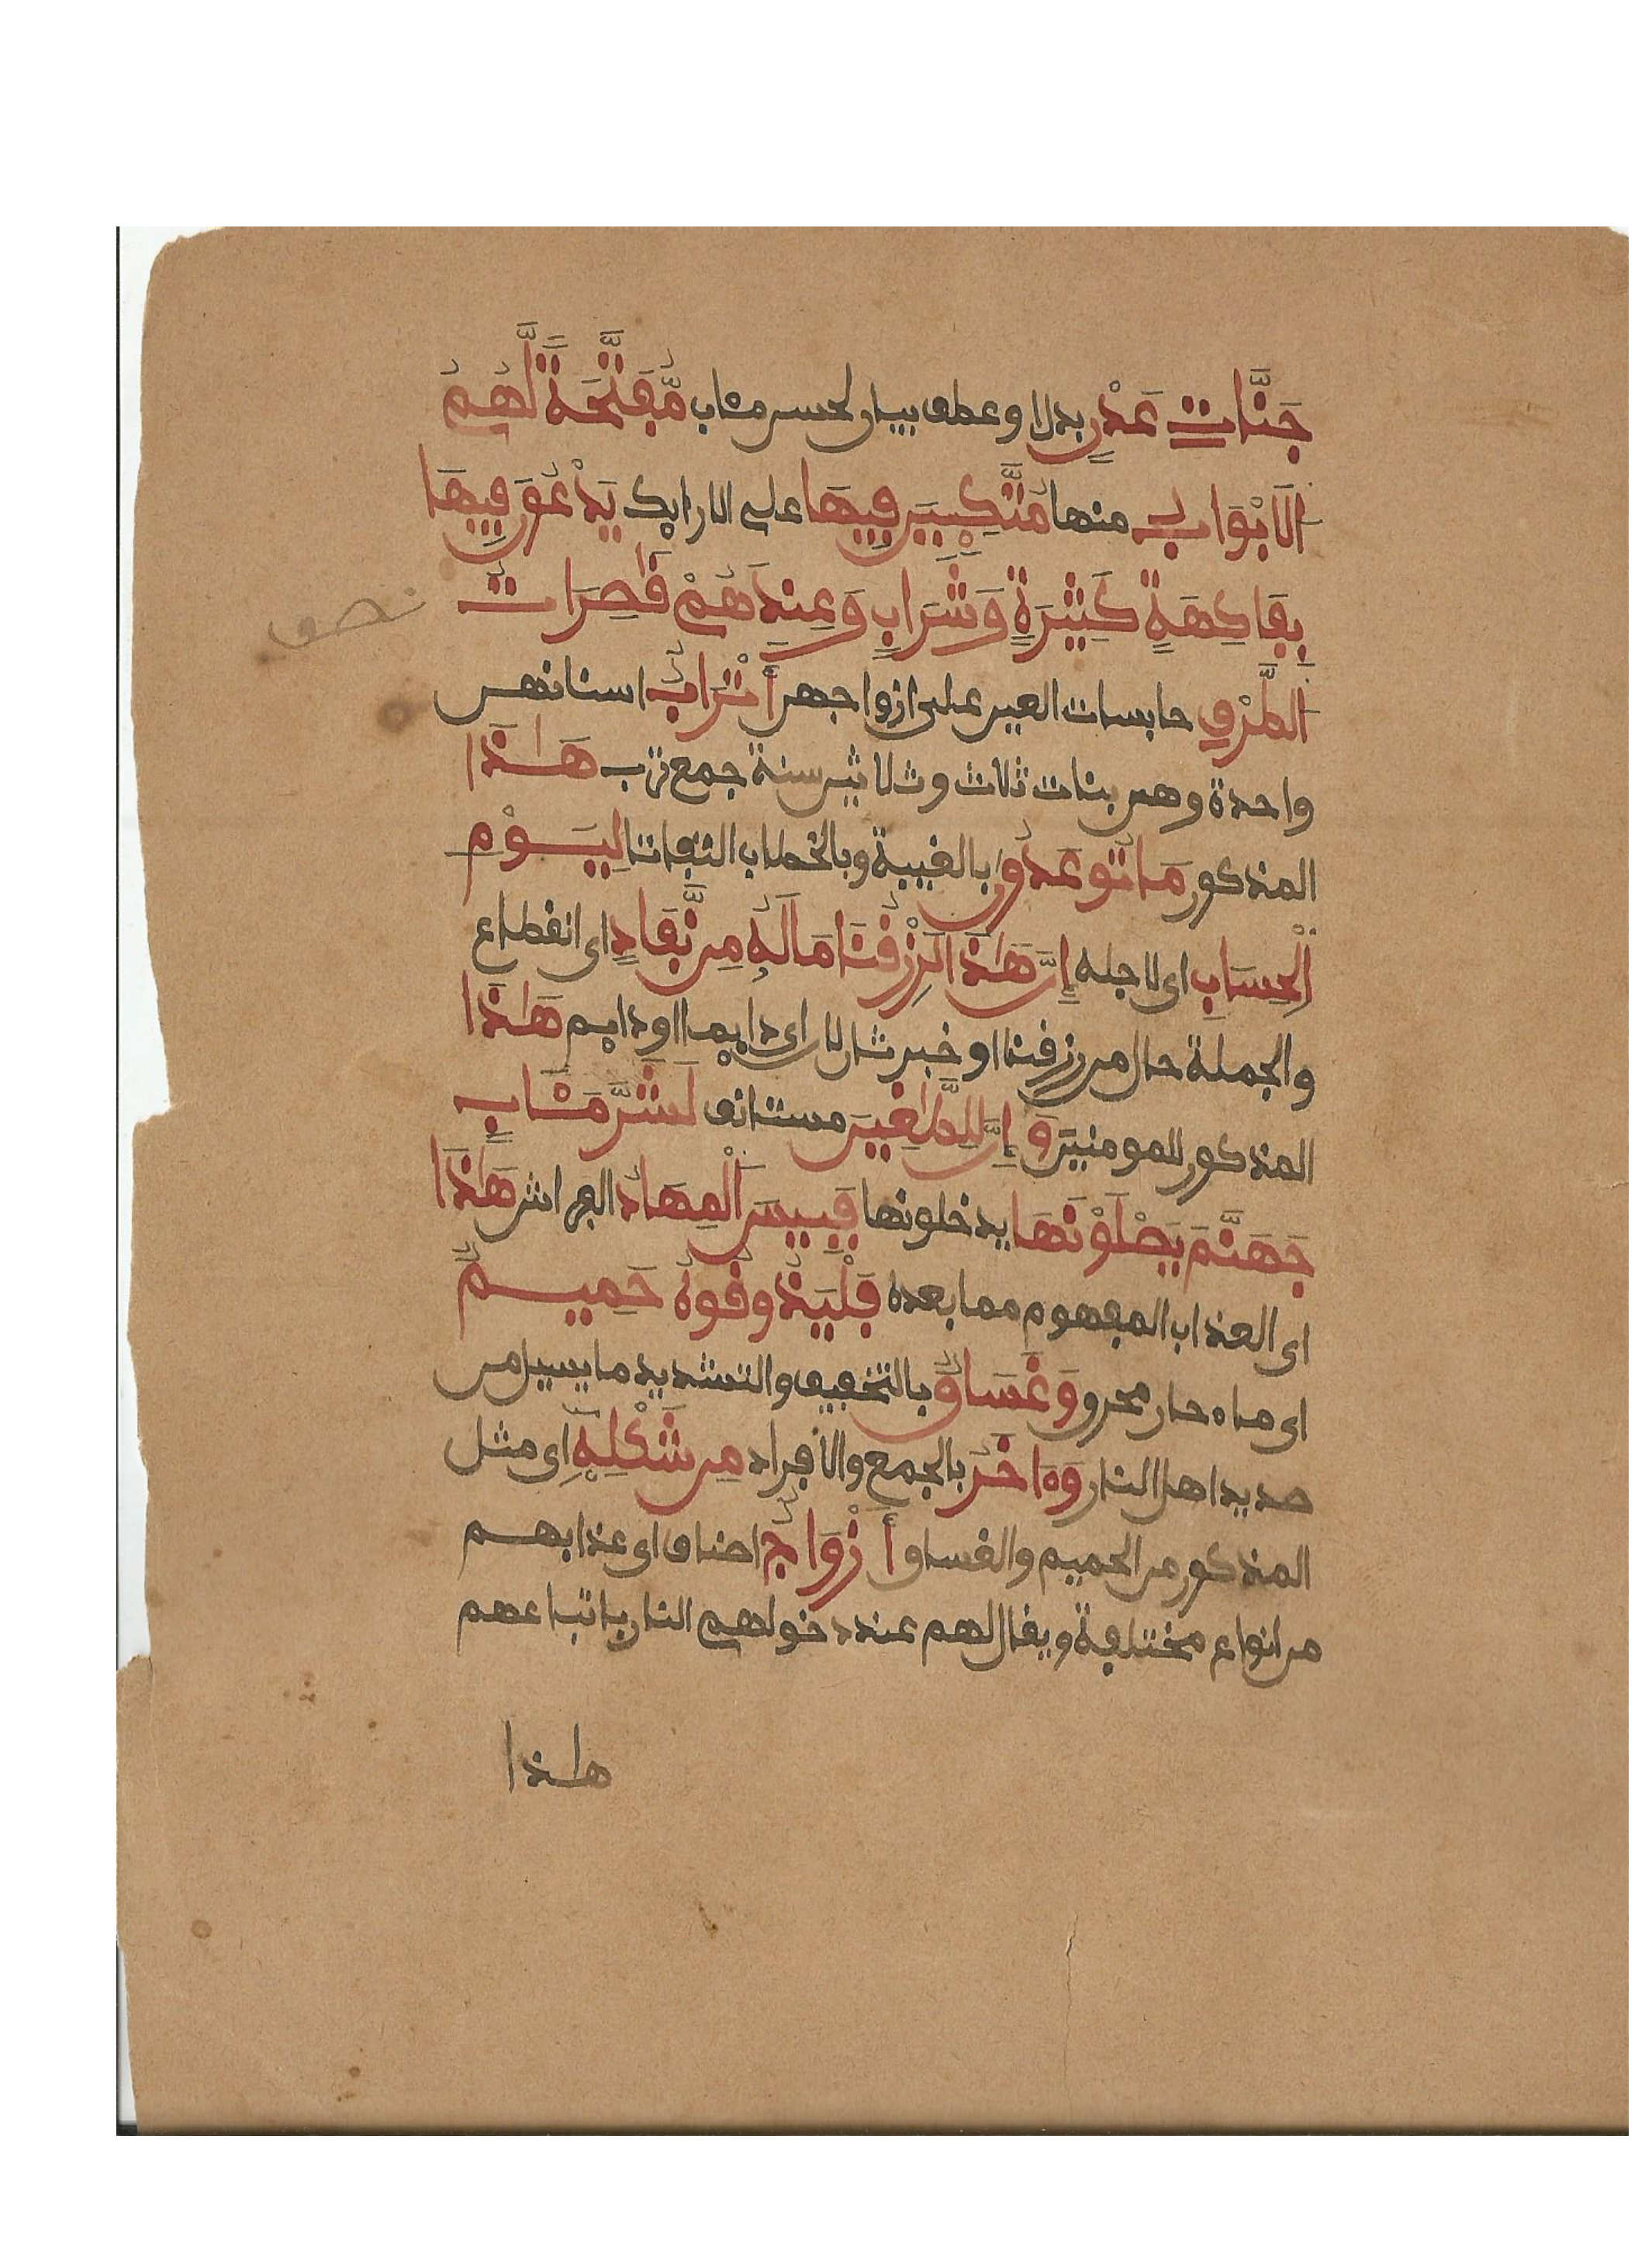 جَنَّاتِ عَدْنٍ بدل او عطف بيان لحسن مئاب مُّفَتَّحَةً لَّهُمُ
الَابْوَابُ منها مُتَّكِـِٕينَ فِيهَا على الارايك يَدْعُونَ فِيهَا
بِفَاكِهَةٍ كَثِيرَةٍ وَشَرَابٍ وَعِندَهُمْ قَٰصِرَاتُ
نصف
الطَّرْفِ حابسات العين على ازواجهن أَتْرَابٌ اسنانهن
واحدة وهن بنات ثلاث وثلاثين سنة جمع ترب هَٰذَا
المذكور مَا تُوعَدُونَ بالغيبة وبالخطاب التفاتا لِيَوْمِ
الْحِسَابِ اى لاجله إِنَّ هَٰذَا لَرِزْقُنَا مَا لَهُ مِن نَّفَادٍ اى انقطاع
والجملة حال من رزقنا او خبر ثان لان اى دايما او دايم هَٰذَا
المذكور للمومنين وَإِنَّ لِلطَّٰغِينَ مستانف لَشَرَّ مَـَٔابٍ
جَهَنَّمَ يَصْلَوْنَهَا يدخلونها فَبِيسَ الْمِهَادُ الفراش هَٰذَا
اى العذاب المفهوم مما بعده فَلْيَذُوقُوهُ حَمِيمٌ
اى ماء حار محرق وَغَسَاقٌ بالتخفيف والتشديد ما يسيل من
صديد اهل النار وَءَاخَرُ بالجمع والافراد مِن شَكْلِهِ اى مثل
المذكور من الحميم والغساق أَزْوَاجٌ اصناف اى عذابهم
من انواع مختلفة ويقال لهم عند دخولهم النار باتباعهم
هٰذا